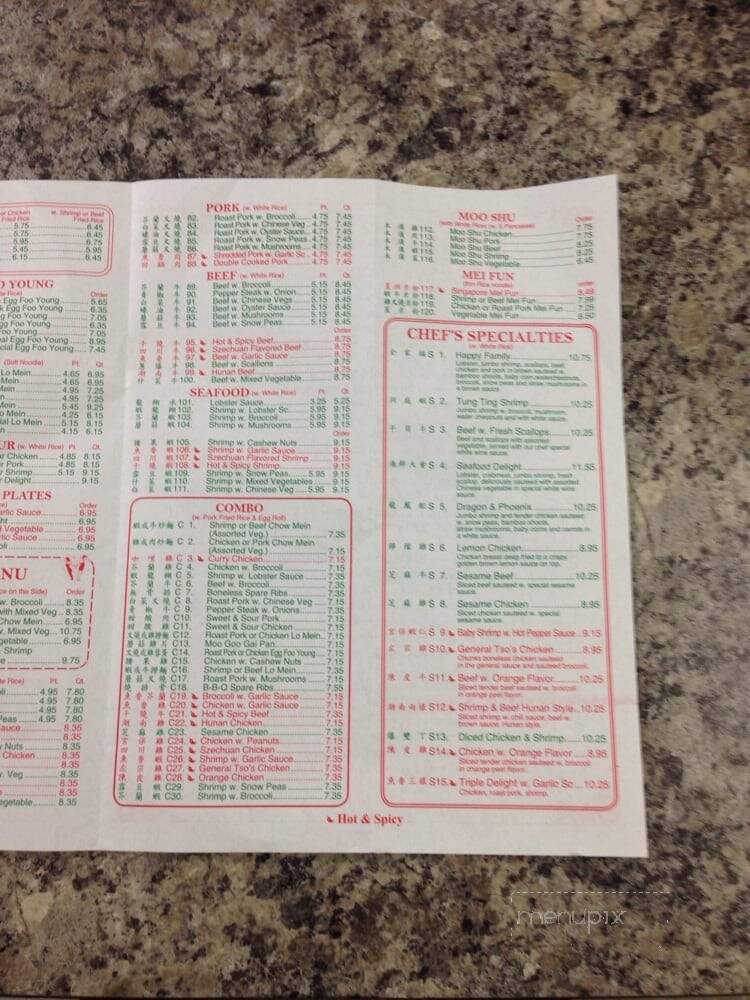 or Chicken w. Shrimp or Beef
Fried Rice Fried Rice
5.75 6.45
5.75 6.45
5.95 6.75
5.45 5.95
6.15 6.45
O YOUNG
Order
Egg Foo Young 5.65
Egg Foo Young 6.35
Egg Foo Young 7.05
gg Foo Young 6.35
Foo Young 7.05
al Egg Foo Young 8.95
cial Egg Foo Young 7.45
(Soft Noodle) Pt. Qt.
Lo Mein 4.65 6.95
Mein 4.65 6.95
Mein 4.95 7.25
4.95 7.25
Mein 5.45 9.25
Mein 4.25
ial Lo Mein 5.15 8.15
UR (w. White Rice) Pt. Qt.
ur Chicken 4.85 8.15
r Pork 4.85 8.15
r Shrimp 5.15 9.15
Delight 9.15
PLATES
Order
arlic Sauce 6.95
ht 6.95
d Vegetable 6.95
arlic Sauce 6.95
oli 6.95
NU
ce on the Side)
w. Broccoli 8.35
with Mixed Veg 8.35
Chow Mein 6.95
w. Mixed Veg 10.75
getable 6.95
Shrimp
e 9.75
te Rice) Pt. Qt.
li 4.95 7.80
4.95 7.80
4.95 7.80
Peas 4.95 7.80
Sauce 8.35
8.35
Nuts 8.35
Chicken 8.35
8.35
Veg 8.35
8.35
8.35
8.35
egetable 8.35
PORK (w. White Rice) Pt. Qt.
芥蘭叉燒 82. Roast Pork w. Broccoli 4.75 7.45
白菜叉燒 83. Roast Pork w. Chinese Veg 4.75 7.45
蠔油叉燒 84. Roast Pork w. Oyster Sauce 4.75 7.45
雪豆叉燒 85. Roast Pork w. Snow Peas 4.75 7.45
蘑菇叉燒 86. Roast Pork w. Mushrooms 4.75 7.45
魚香肉 87. Shredded Pork w. Garlic Sc 4.75 7.45
回鍋肉 88. Double Cooked Pork 4.75 7.45
BEEF (w. White Rice) Pt. Qt.
芥蘭牛 89. Beef w. Broccoli 5.15 8.45
青椒牛 90. Pepper Steak w. Onion 5.15 8.45
白菜牛 91. Beef w. Chinese Vegs 5.15 8.45
蠔油牛 92. Beef w. Oyster Sauce 5.15 8.45
蘑菇牛 93. Beef w. Mushrooms 5.15 8.45
雪豆牛 94. Beef w. Snow Peas 5.15 8.45
Order
干燒牛 95. Hot & Spicy Beef 8.75
四川牛 96. Szechuan Flavored Beef 8.75
魚香牛 97. Beef w. Garlic Sauce 8.75
蔥爆牛 98. Beef w. Scallions 8.75
湖南牛 99. Hunan Beef 8.75
什菜牛 100. Beef w. Mixed Vegetable 8.75
SEAFOOD (w. White Rice) Pt. Qt.
龍糊水 101. Lobster Sauce 3.25 5.25
蝦龍糊 102. Shrimp w. Lobster Sc 5.95 9.15
芥蘭蝦 103. Shrimp w. Broccoli 5.95 9.15
蘑菇蝦 104. Shrimp w. Mushrooms 5.95 9.15
Order
腰果蝦 105. Shrimp w. Cashew Nuts 9.15
魚香蝦 106. Shrimp w. Garlic Sauce 9.15
四川蝦 107. Szechuan Flavored Shrimp 9.15
干燒蝦 108. Hot & Spicy Shrimp 9.15
雪豆蝦 109. Shrimp w. Snow Peas 5.95 9.15
什菜蝦 110. Shrimp w. Mixed Vegetables 9.15
白菜蝦 111. Shrimp w. Chinese Veg 5.95 9.15
COMBO
(w. Pork Fried Rice & Egg Roll)
蝦或牛炒麵 C 1. Shrimp or Beef Chow Mein
(Assorted Veg.) 7.35
雞或肉炒麵 C 2. Chicken or Pork Chow Mein
(Assorted Veg.) 7.15
咖哩雞 C 3. Curry Chicken 7.15
芥蘭雞 C 4. Chicken w. Broccoli 7.15
蝦龍糊 C 5. Shrimp w. Lobster Sauce 7.35
芥蘭牛 C 6. Beef w. Broccoli 7.35
無骨排 C 7. Boneless Spare Ribs 7.35
白菜叉燒 C 8. Roast Pork w. Chinese Veg 7.15
青椒牛 C 9. Pepper Steak w. Onions 7.35
甜酸肉 C10. Sweet & Sour Pork 7.15
甜酸雞 C11. Sweet & Sour Chicken 7.15
叉燒或雞撈麵 C12. Roast Pork or Chicken Lo Mein 7.15
蘑菇雞片 C13. Moo Goo Gai Pan 7.15
叉燒或雞蓉蛋 C14. Roast Pork or Chicken Egg Foo Young 7.15
腰果雞 C15. Chicken w. Cashew Nuts 7.15
蝦或牛撈麵 C16. Shrimp or Beef Lo Mein 7.35
蘑菇叉燒 C17. Roast Pork w. Mushrooms 7.15
燒排骨 C18. B-B-Q Spare Ribs 7.55
魚香芥蘭 C19. Broccoli w. Garlic Sauce 7.15
魚香雞 C20. Chicken w. Garlic Sauce 7.15
干燒牛 C21. Hot & Spicy Beef 7.35
湖南雞 C22. Hunan Chicken 7.15
芝麻雞 C23. Sesame Chicken 7.35
宮保雞 C24. Chicken w. Peanuts 7.15
四川雞 C25. Szechuan Chicken 7.15
魚香蝦 C26. Shrimp w. Garlic Sauce 7.35
左宗雞 C27. General Tso's Chicken 7.35
陳皮雞 C28. Orange Chicken 7.35
雪豆蝦 C29. Shrimp w. Snow Peas 7.35
芥蘭蝦 C30. Shrimp w. Broccoli 7.35
Hot & Spicy
MOO SHU
(with White Rice or 5 Pancakes) Order
木須雞 112. Moo Shu Chicken 7.75
木須肉 113. Moo Shu Pork 7.75
木須牛 114. Moo Shu Beef 8.25
木須蝦 115. Moo Shu Shrimp 8.25
木須菜 116. Moo Shu Vegetable 6.45
MEI FUN
(thin Rice noodle) Order
星洲米粉 117. Singapore Mei Fun 8.49
蝦牛米粉 118. Shrimp or Beef Mei Fun 7.99
雞叉燒米粉 119. Chicken or Roast Pork Mei Fun 7.25
菜米粉 120. Vegetable Mei Fun 6.50
CHEF'S SPECIALTIES
(w. White Rice)
全家福 S 1. Happy Family 10.75
Lobster, jumbo shrimp, scallops, beef,
chicken and pork in brown sauteed w.
bamboo shoots, baby corn, waterchestnuts,
broccoli, snow peas and straw mushrooms in
a brown sauce
洞庭蝦 S 2. Tung Ting Shrimp 10.25
Jumbo shrimp w. broccoli, mushroom,
water chestnuts and with white sauce.
干貝牛 S 3. Beef w. Fresh Scallops 10.25
Beef and scallops with assorted
vegetable, served with our chef special
white wine sauce.
海鮮大會 S 4. Seafood Delight 11.55
Lobster, crabmeat, jumbo shrimp, fresh
scallop, deliciously sauteed with assorted
Chinese vegetable in special white wine
sauce.
龍鳳配 S 5. Dragon & Phoenix 10.25
Jumbo shrimp and tender chicken sauteed
w. snow peas, bamboo shoots,
straw mushrooms, baby corns and carrots in
a white sauce.
檸檬雞 S 6. Lemon Chicken 8.95
Chicken breast deep fried to a crispy
golden brown lemon sauce on top.
芝麻牛 S 7. Sesame Beef 10.25
Sliced beef sauteed w. special sesame
sauce.
芝麻雞 S 8. Sesame Chicken 8.95
Sliced chicken sauteed w. special
sesame sauce.
宮保蝦仁 S 9. Baby Shrimp w. Hot Pepper Sauce 9.15
左宗雞 S10. General Tso's Chicken 8.95
Chunks boneless chicken sauteed
in the general sauce and sauteed broccoli.
陳皮牛 S11. Beef w. Orange Flavor 10.25
Sliced tender beef sauteed w. broccoli
in orange peel flavor.
湖南兩樣 S12. Shrimp & Beef Hunan Style 10.25
Sliced shrimp w. chili sauce, beef w.
brown sauce, Hunan style.
爆雙丁 S13. Diced Chicken & Shrimp 10.25
陳皮雞 S14. Chicken w. Orange Flavor 8.95
Sliced tender chicken sauteed w. broccoli
in orange peel flavor.
魚香三樣 S15. Triple Delight w. Garlic Sc 10.25
Chicken, roast pork, shrimp.
menupix